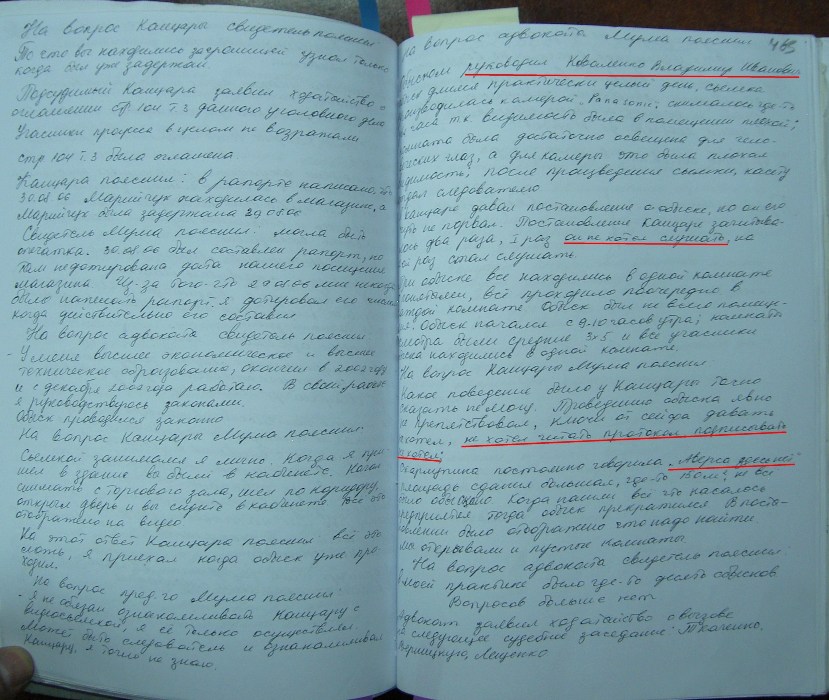 На вопрос Канцары свидетель пояснил
То что вы находились за границей узнал только
когда был уже задержан.
Подсудимый Канцара заявил ходатайство о
оглашении стр 104 т.3 данного уголовного дела
Участники процесса в целом не возражали
стр 104 т.3 была оглашена
Канцара пояснил: в рапорте написано, что
30.08.06 Марийчук находилась в магазине, а
Марийчук была задержана 29.08.06
Свидетель Мума пояснил: могла быть
опечатка. 30.08.06 был составлен рапорт, но
там не дотирована дата нашего посещения
магазина. Из-за того что 29.08.06 мне некогда
было написать рапорт я дотировал его числом
когда действительно его составил
На вопрос адвоката свидетель пояснил
- У меня высшее экономическое и высшее
техническое образование, окончил в 2002 году
и с декабря 2002 года работаю. В своей работе
я руководствуюсь законами.
Обыск проводился законно
На вопрос Канцары Мума пояснил:
Съемкой занимался я лично. Когда я при-
шел в здание вы были в кабинете. Начал
снимать с торгового зала, шел по коридору,
открыли дверь и вы сидите в кабинете все это
отображено на видео
На этот ответ Канцара пояснил всё это
ложь, я приехал когда обыск уже про-
ходил.
На вопрос пред-го Мума пояснил:
- Я не обязан ознакамливать Канцару с
видеосъемкой, я её только осуществлял.
Может быть следователь и ознакамливал
Канцару, я точно не знаю.
На вопрос адвоката Мума пояснил
Обыском руководил Коваленко Владимир Иванович
длился практически целый день, съемка
производилась камерой "Panasonic", снималось где-то
часа т.к. видимость была в помещении плохой;
комната была достаточно освещена для чело-
веческих глаз, а для камеры это была плохая
видимость; после произведения съемки, касету
отдал следователю
Канцаре давал постановление о обыске, но он его
не порвал. Постановление Канцаре зачитыва-
лось два раза, I раз он не хотел слушать, на
раз стал слушать.
При обыске все находились в одной комнате
понятыми, всё проходило поочередно в
каждой комнате. Обыск был не всего помеще-
ния. Обыск начался с 9-10 часов утра; комнаты
осмотра были средние 3х5 и все участники
обыска находились в одной комнате.
На вопрос Канцары Мума пояснил:
Какое поведение было у Канцары точно
сказать не могу. Проведению обыска явно
не препятствовал, ключи от сейфа давать
не хотел, не хотел читать протокол, подписывать
не хотел;
постоянно говорила
площадь здания большая, где-то не все
было обыскано когда нашли все что касалось
предприятия тогда обыск прекратился. В поста-
новлении было отображено что надо найти
мы открывали и пустые комнаты.
На вопрос адвоката свидетель пояснил:
В моей практике было где-то десять обысков
Вопросов больше нет
Адвокат заявил ходатайство о вызове
в следующее судебное заседание: Ткаченко,
Лещенко